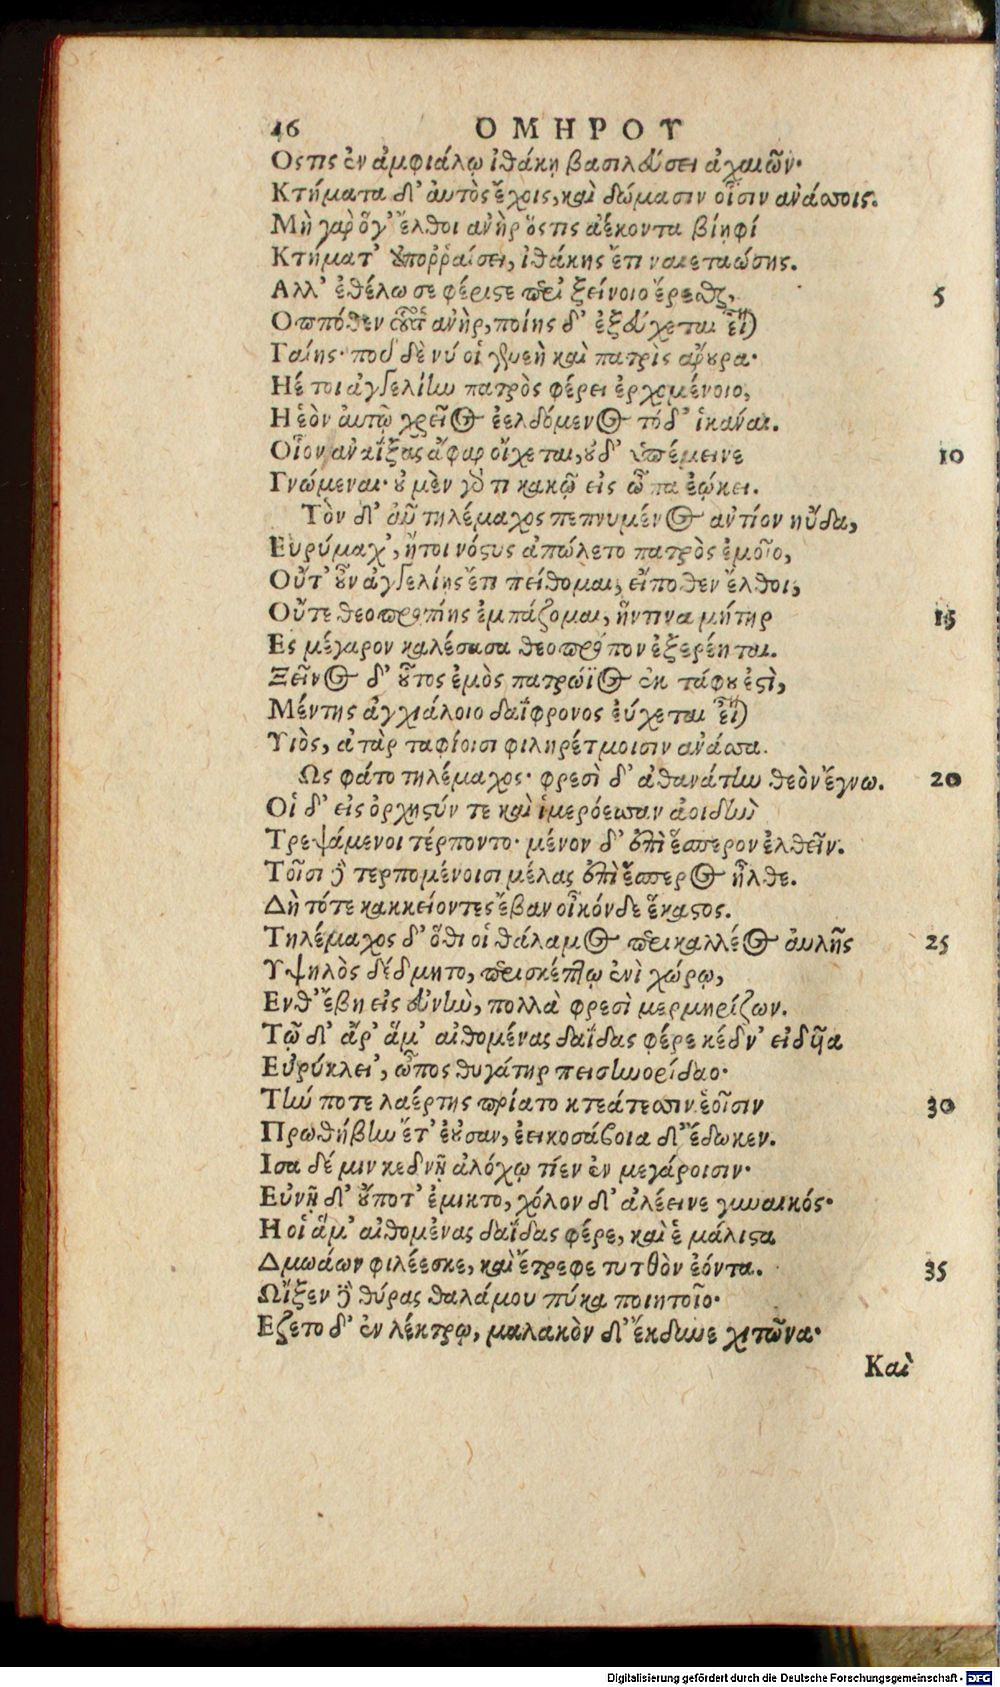 46 ΟΜΗΡΟΥ
Οςτις ἐν ἀμφιάλῳ ἰθάκῃ βασιλεύσει ἀχαιῶν·
Κτήματα δ' αὐτὸς ἔχοις, καὶ δώμασιν οἷσιν ἀνάσσοις.
Μὴ γαρ ὅγ' ἔλθοι ἀνὴρ ὅςτις ἀέκοντα βίηφί
Κτήματ' ἀποῤῥαίσει, ἰθάκης ἔτι ναιεταώσης.
Αλλ' ἐθέλω σε φέριστε περὶ ξείνοιο ἔρεσθαι, 5
Οππόθεν οὗτος ἀνὴρ, ποίης δ' ἐξεύχεται εἶναι
Γαίης· ποῦ δὲ νύ οἱ γενεὴ καὶ πατρὶς ἄρουρα·
Ηέ τοι ἀγγελίην πατρὸς φέρει ἐρχομένοιο,
Η ἑὸν αὐτῷ χρεῖος ἐελδόμενος τόδ' ἱκάναι.
Οἷον ἀναΐξας ἄφαρ οἴχεται, οὐδ' ὑπέμεινε 10
Γνώμεναι· οὐ μὲν γάρ τι κακῷ εἰς ὦπα ἐῴκει.
Τὸν δ' αὖ τηλέμαχος πεπνυμένος ἀντίον ηὔδα,
Ευρύμαχ', ἤτοι νόστος ἀπώλετο πατρὸς ἐμοῖο,
Οὔτ' οὖν ἀγγελίης ἔτι πείθομαι, εἴποθεν ἔλθοι,
Οὔτε θεοπροπίης ἐμπάζομαι, ἥντινα μήτηρ 15
Ες μέγαρον καλέσασα θεοπρόπον ἐξερέηται.
Ξεῖνος δ' οὗτος ἐμὸς πατρώϊος ἐκ τάφου ἐστὶ,
Μέντης ἀγχιάλοιο δαΐφρονος εὔχεται εἶναι
Υιὸς, ἀτὰρ ταφίοισι φιληρέτμοισιν ἀνάσσα.
Ως φάτο τηλέμαχος· φρεσὶ δ' ἀθανάτην θεὸν ἔγνω. 20
Οἱ δ' εἰς ὀρχηστύν τε καὶ ἱμερόεσσαν ἀοιδὴν
Τρεψάμενοι τέρποντο· μένον δ' ἐπὶ ἕσπερον ἐλθεῖν.
Τοῖσι δὲ τερπομένοισι μέλας ἐπὶ ἕσπερος ἦλθε.
Δὴ τότε κακκείοντες ἔβαν οἶκόνδε ἕκαστος.
Τηλέμαχος δ' ὅθι οἱ θάλαμος περικαλλέος αὐλῆς 25
Υψηλὸς δέδμητο, περισκέπτῳ ἐνὶ χώρῳ,
Ενθ' ἔβη εἰς εὐνὴν, πολλὰ φρεσὶ μερμηρίζων.
Τῷ δ' ἄρ' ἅμ' αἰθομένας δαΐδας φέρε κέδν' εἰδῆα
Εὐρύκλει', ὦπος θυγάτηρ πεισηνορίδαο·
Τήν ποτε λαέρτης πρίατο κτεάτεσσιν ἑοῖσιν 30
Πρωθήβην ἔτ' ἐοῦσαν, ἐεικοσάβοια δ' ἔδωκεν.
Ισα δέ μιν κεδνῇ ἀλόχῳ τίεν ἐν μεγάροισιν·
Εὐνῇ δ' οὔποτ' ἔμικτο, χόλον δ' ἀλέεινε γυναικός·
Η οἱ ἅμ' αἰθομένας δαΐδας φέρε, καὶ ἑ μάλιστα
Δμωάων φιλέεσκε, καὶ ἔτρεφε τυτθὸν ἐόντα. 35
Ωἴξεν δὲ θύρας θαλάμου πύκα ποιητοῖο·
Εζετο δ' ἐν λέκτρῳ, μαλακὸν δ' ἔκδυνε χιτῶνα·
Καὶ
Digitalisierung gefördert durch die Deutsche Forschungsgemeinschaft - DFG